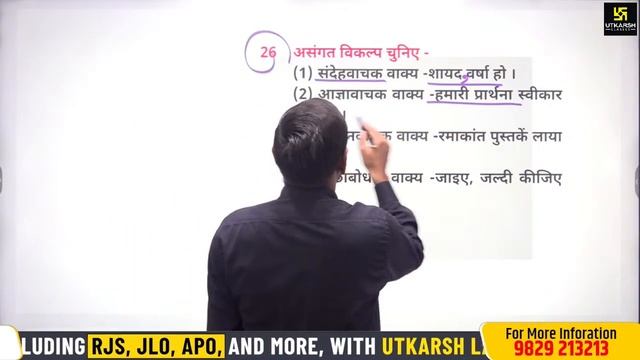 UTKARSH
CLASSES
26 असंगत विकल्प चुनिए -
(1) संदेहवाचक वाक्य -शायद वर्षा हो ।
(2) आज्ञावाचक वाक्य -हमारी प्रार्थना स्वीकार
।
वाक्य -रमाकांत पुस्तकें लाया
वाक्य -जाइए, जल्दी कीजिए
LUDING RJS, JLO, APO, AND MORE, WITH UTKARSH
For More Inforation
9829 213213